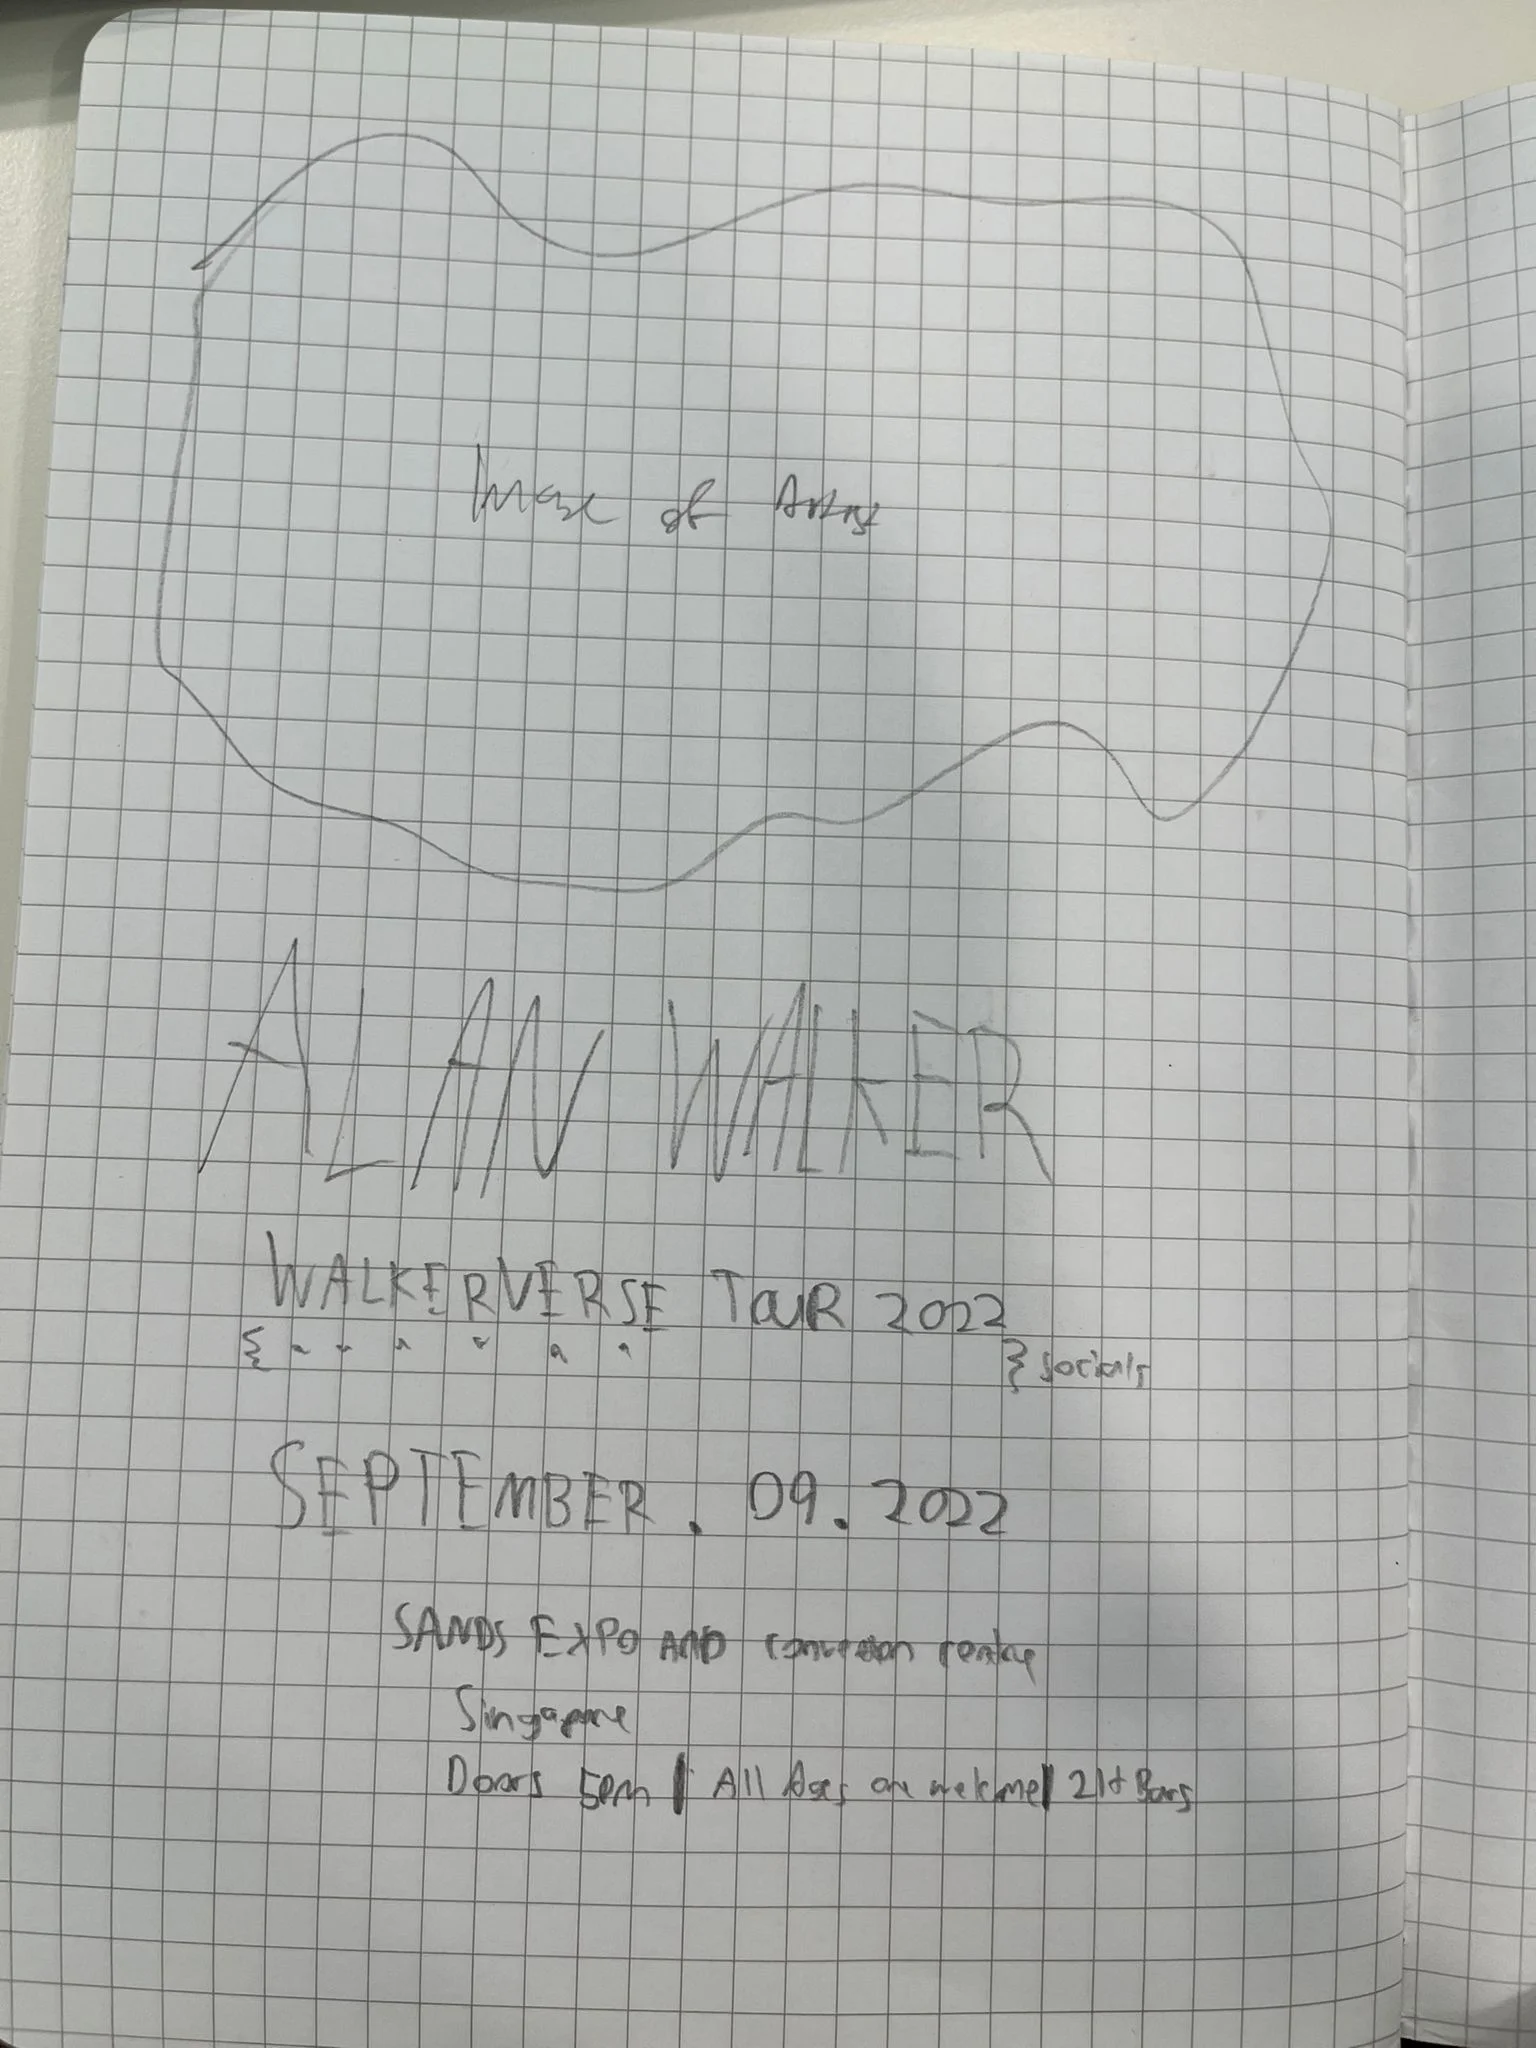 Image of Artist
ALAN WALKER
WALKERVERSE TOUR 2022
} socials
SEPTEMBER . 09. 2022
SANDS EXPO AND convention centre
Singapore
Doors 5pm | All Ages are welcome | 21+ Bars